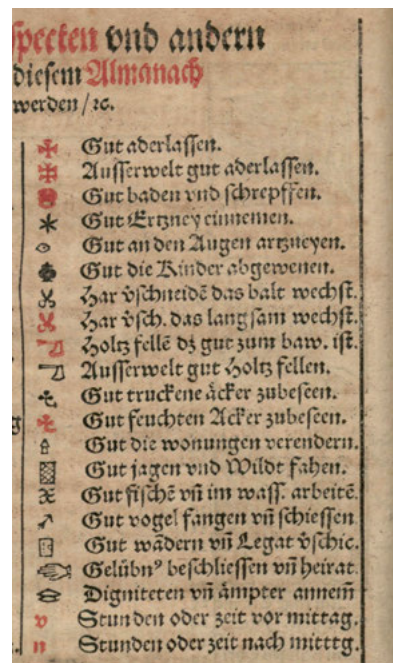 specten vnd andern
diesem Almanach
werden / ꝛc.
Gut aderlassen.
Ausserwelt gut aderlassen.
Gut baden vnd schrepffen.
Gut Ertzney einnemen.
Gut an den Augen artzneyen.
Gut die Kinder abgewenen.
Har v̄schneidē das balt wechst.
Har v̄sch. das langsam wechst.
Holtz fellē dz gut zum baw. ist.
Ausserwelt gut Holtz fellen.
Gut truckene äcker zubeseen.
Gut feuchten Acker zubeseen.
Gut die wonungen verendern.
Gut jagen vnd Wildt fahen.
Gut fischē vn̄ im wass. arbeitē.
Gut vogel fangen vn̄ schiessen
Gut wādern vn̄ Legat v̄schic.
Gelübnꝰ beschliessen vn̄ heirat.
Digniteten vn̄ ämpter annem̄
v Stunden oder zeit vor mittag.
n Stunden oder zeit nach mitttg.